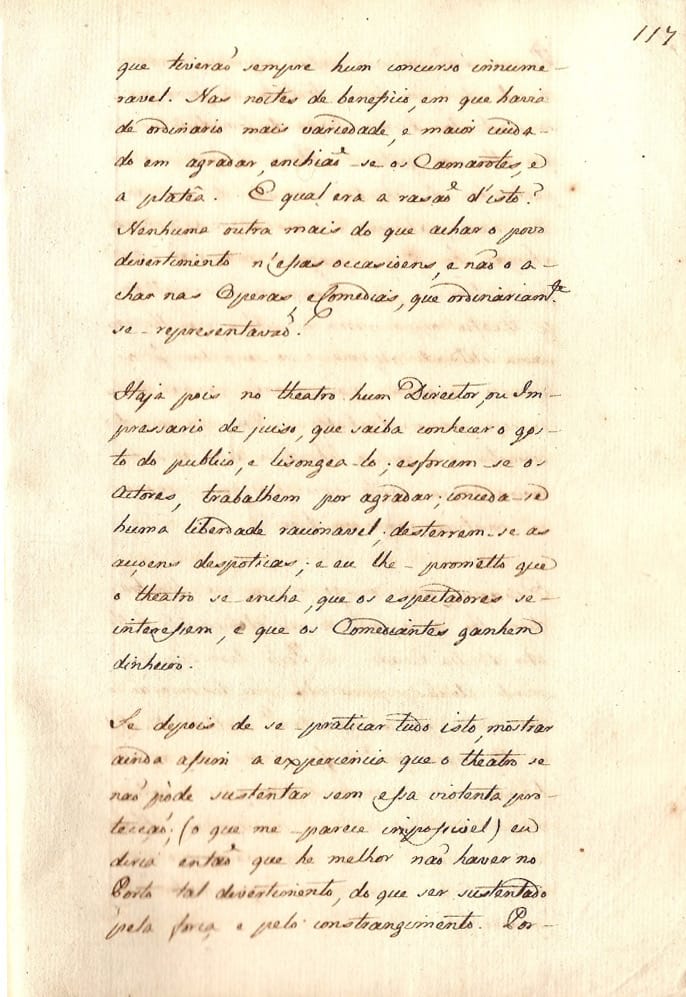 117
que tiveraõ sempre hum concurso innume-
ravel. Nas noites de beneficio, em que havia
de ordinario mais variedade, e maior cuida-
do em agradar, enchiaõ-se os Camarotes, e
a platêa. E qual era a rasaõ d'isto?
Nenhuma outra mais do que achar o povo
divertimento n'essas occasioens, e não o a-
char nas Operas, e Comedias, que ordinariam.te
se-representavaõ.
Haja pois no theatro hum Director, ou Im-
pressario de juiso, que saiba conhecer o gos-
to do publico, e lisongea-lo; esforcem-se os
Actores, trabalhem por agradar; conceda-se
huma liberdade racionavel; desterrem-se as
acçoens despoticas; e eu lhe-prometto que
o theatro se encha, que os espectadores se-
interessem, e que os Comediantes ganhem
dinheiro.
Se depois de se-praticar tudo isto, mostrar
ainda assim a experiencia que o theatro se
naõ póde sustentar sem essa violenta pro-
tecçaõ; (o que me-parece impossivel) eu
diria entaõ que he melhor naõ haver no
Porto tal divertimento, do que ser sustentado
pela força e pelo constrangimento. Por-